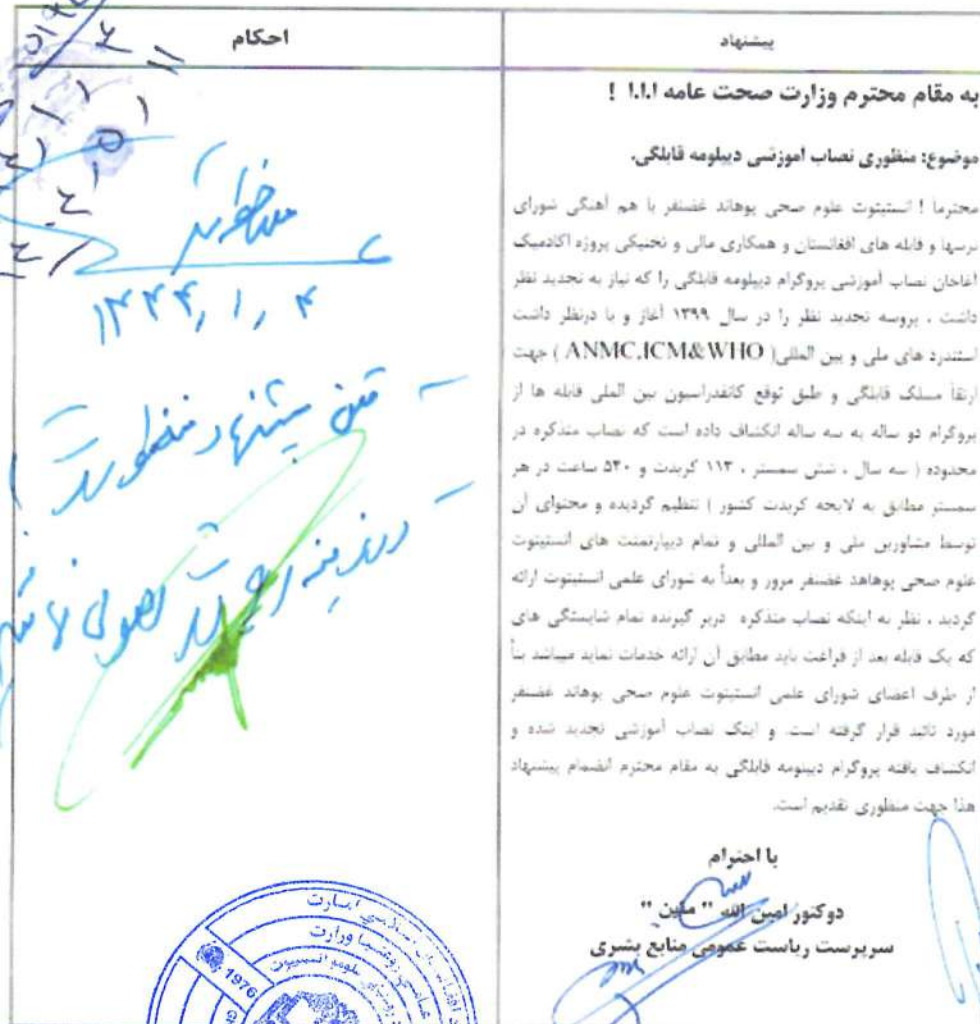 پیشنهاد
به مقام محترم وزارت صحت عامه ا.ا.ا !
موضوع: منظوری نصاب اموزشی دیپلومه قابلگی.
محترما ! انستیتوت علوم صحی پوهاند غضنفر با هم آهنگی شورای
نرسها و قابله های افغانستان و همکاری مالی و تخنیکی پروژه اکادمیک
اغاخان نصاب آموزشی پروگرام دیپلومه قابلگی را که نیاز به تجدید نظر
داشت ، پروسه تجدید نظر را در سال ۱۳۹۹ آغاز و با درنظر داشت
استندرد های ملی و بین المللی( ANMC,ICM&WHO ) جهت
ارتقأ مسلک قابلگی و طبق توقع کانفدراسیون بین الملی قابله ها از
پروگرام دو ساله به سه ساله انکشاف داده است که نصاب متذکره در
محدوده ( سه سال ، شش سمستر ، ۱۱۳ کریدت و ۵۴۰ ساعت در هر
سمستر مطابق به لایحه کریدت کشور ) تنظیم گردیده و محتوای آن
توسط مشاورین ملی و بین المللی و تمام دیپارتمنت های انستیتوت
علوم صحی پوهاهد غضنفر مرور و بعدأ به شورای علمی انستیتوت ارائه
گردید ، نظر به اینکه نصاب متذکره دربر گیرنده تمام شایستگی های
که یک قابله بعد از فراغت باید مطابق آن ارائه خدمات نماید میباشد بنأ
از طرف اعضای شورای علمی انستیتوت علوم صحی پوهاند غضنفر
مورد تائید قرار گرفته است. و اینک نصاب آموزشی تجدید شده و
انکشاف یافته پروگرام دیپلومه قابلگی به مقام محترم انضمام پیشنهاد
هذا جهت منظوری تقدیم است.
با احترام
دوکتور امین الله " متین "
سرپرست ریاست عمومی منابع بشری
احکام
ملاحظه شد
۱۴۴۴,۱,۴
- متن پیشنهاد منظور است
امارت
وزارت
1976